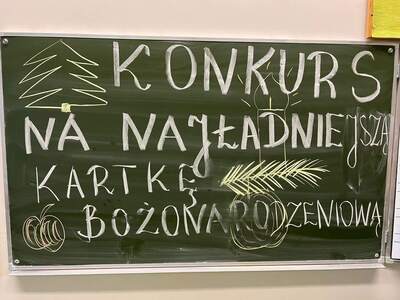 KONKURS
NA NAJŁADNIEJSZĄ
KARTKĘ
BOŻONARODZENIOWĄ